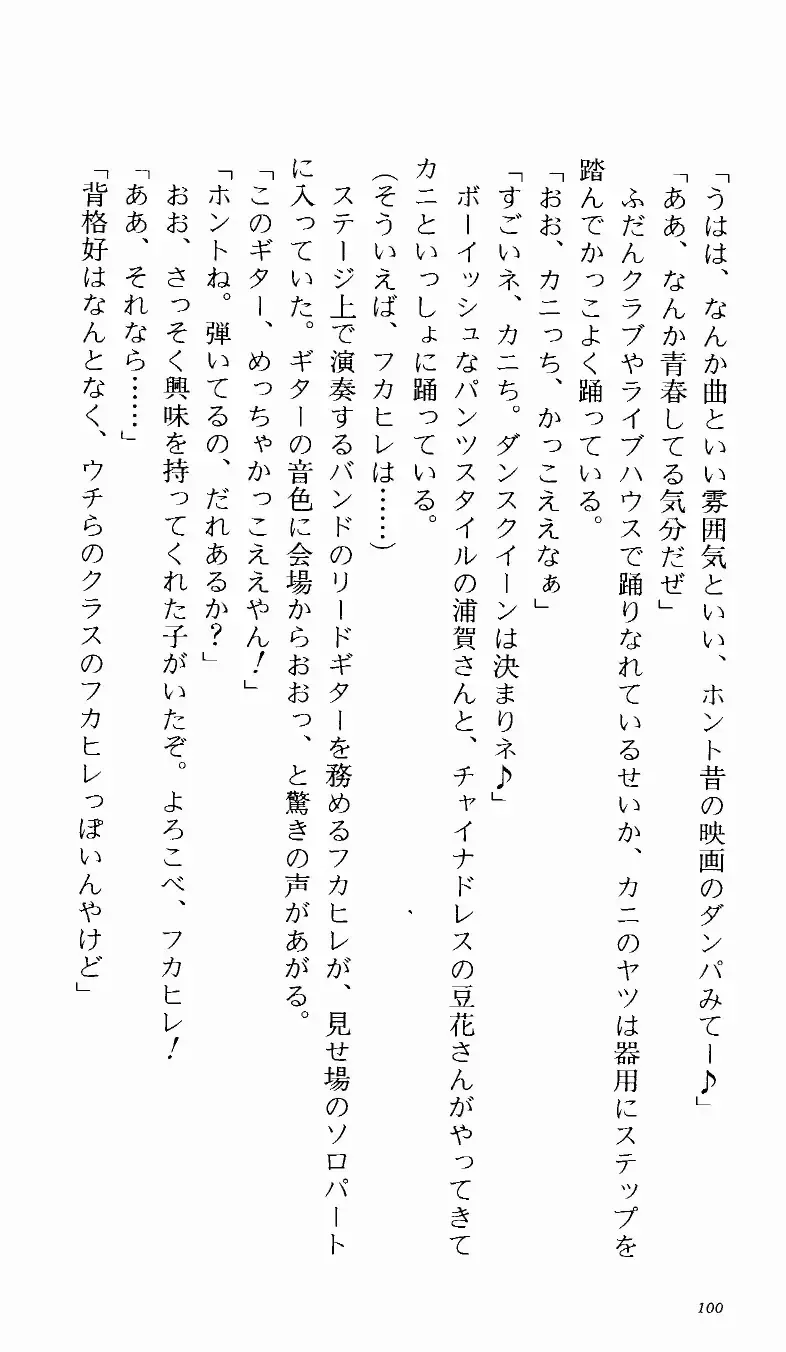 「うはは、なんか曲といい雰囲気といい、ホント昔の映画のダンパみてー♪」
「ああ、なんか青春してる気分だぜ」
　ふだんクラブやライブハウスで踊りなれているせいか、カニのヤツは器用にステップを
踏んでかっこよく踊っている。
「おお、カニっち、かっこええなぁ」
「すごいネ、カニち。ダンスクイーンは決まりネ♪」
　ボーイッシュなパンツスタイルの浦賀さんと、チャイナドレスの豆花さんがやってきて
カニといっしょに踊っている。
（そういえば、フカヒレは……）
　ステージ上で演奏するバンドのリードギターを務めるフカヒレが、見せ場のソロパート
に入っていた。ギターの音色に会場からおおっ、と驚きの声があがる。
「このギター、めっちゃかっこええやん！」
「ホントね。弾いてるの、だれあるか？」
　おお、さっそく興味を持ってくれた子がいたぞ。よろこべ、フカヒレ！
「ああ、それなら……」
「背格好はなんとなく、ウチらのクラスのフカヒレっぽいんやけど」
100